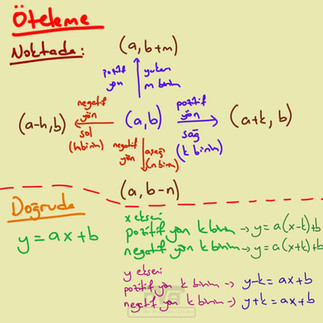 Öteleme
Noktada:
(a, b+m)
pozitif yön
yukarı m birim
negatif yön
sol
(h birim)
(a-h, b)
(a, b)
pozitif yön
sağ
(k birim)
(a+k, b)
negatif yön
aşağı
(n birim)
(a, b-n)
Doğruda
y = ax+b
x ekseni
pozitif yön k birim → y = a(x-k)+b
negatif yön k birim → y = a(x+k)+b
y ekseni
pozitif yön k birim → y-k = ax+b
negatif yön k birim → y+k = ax+b